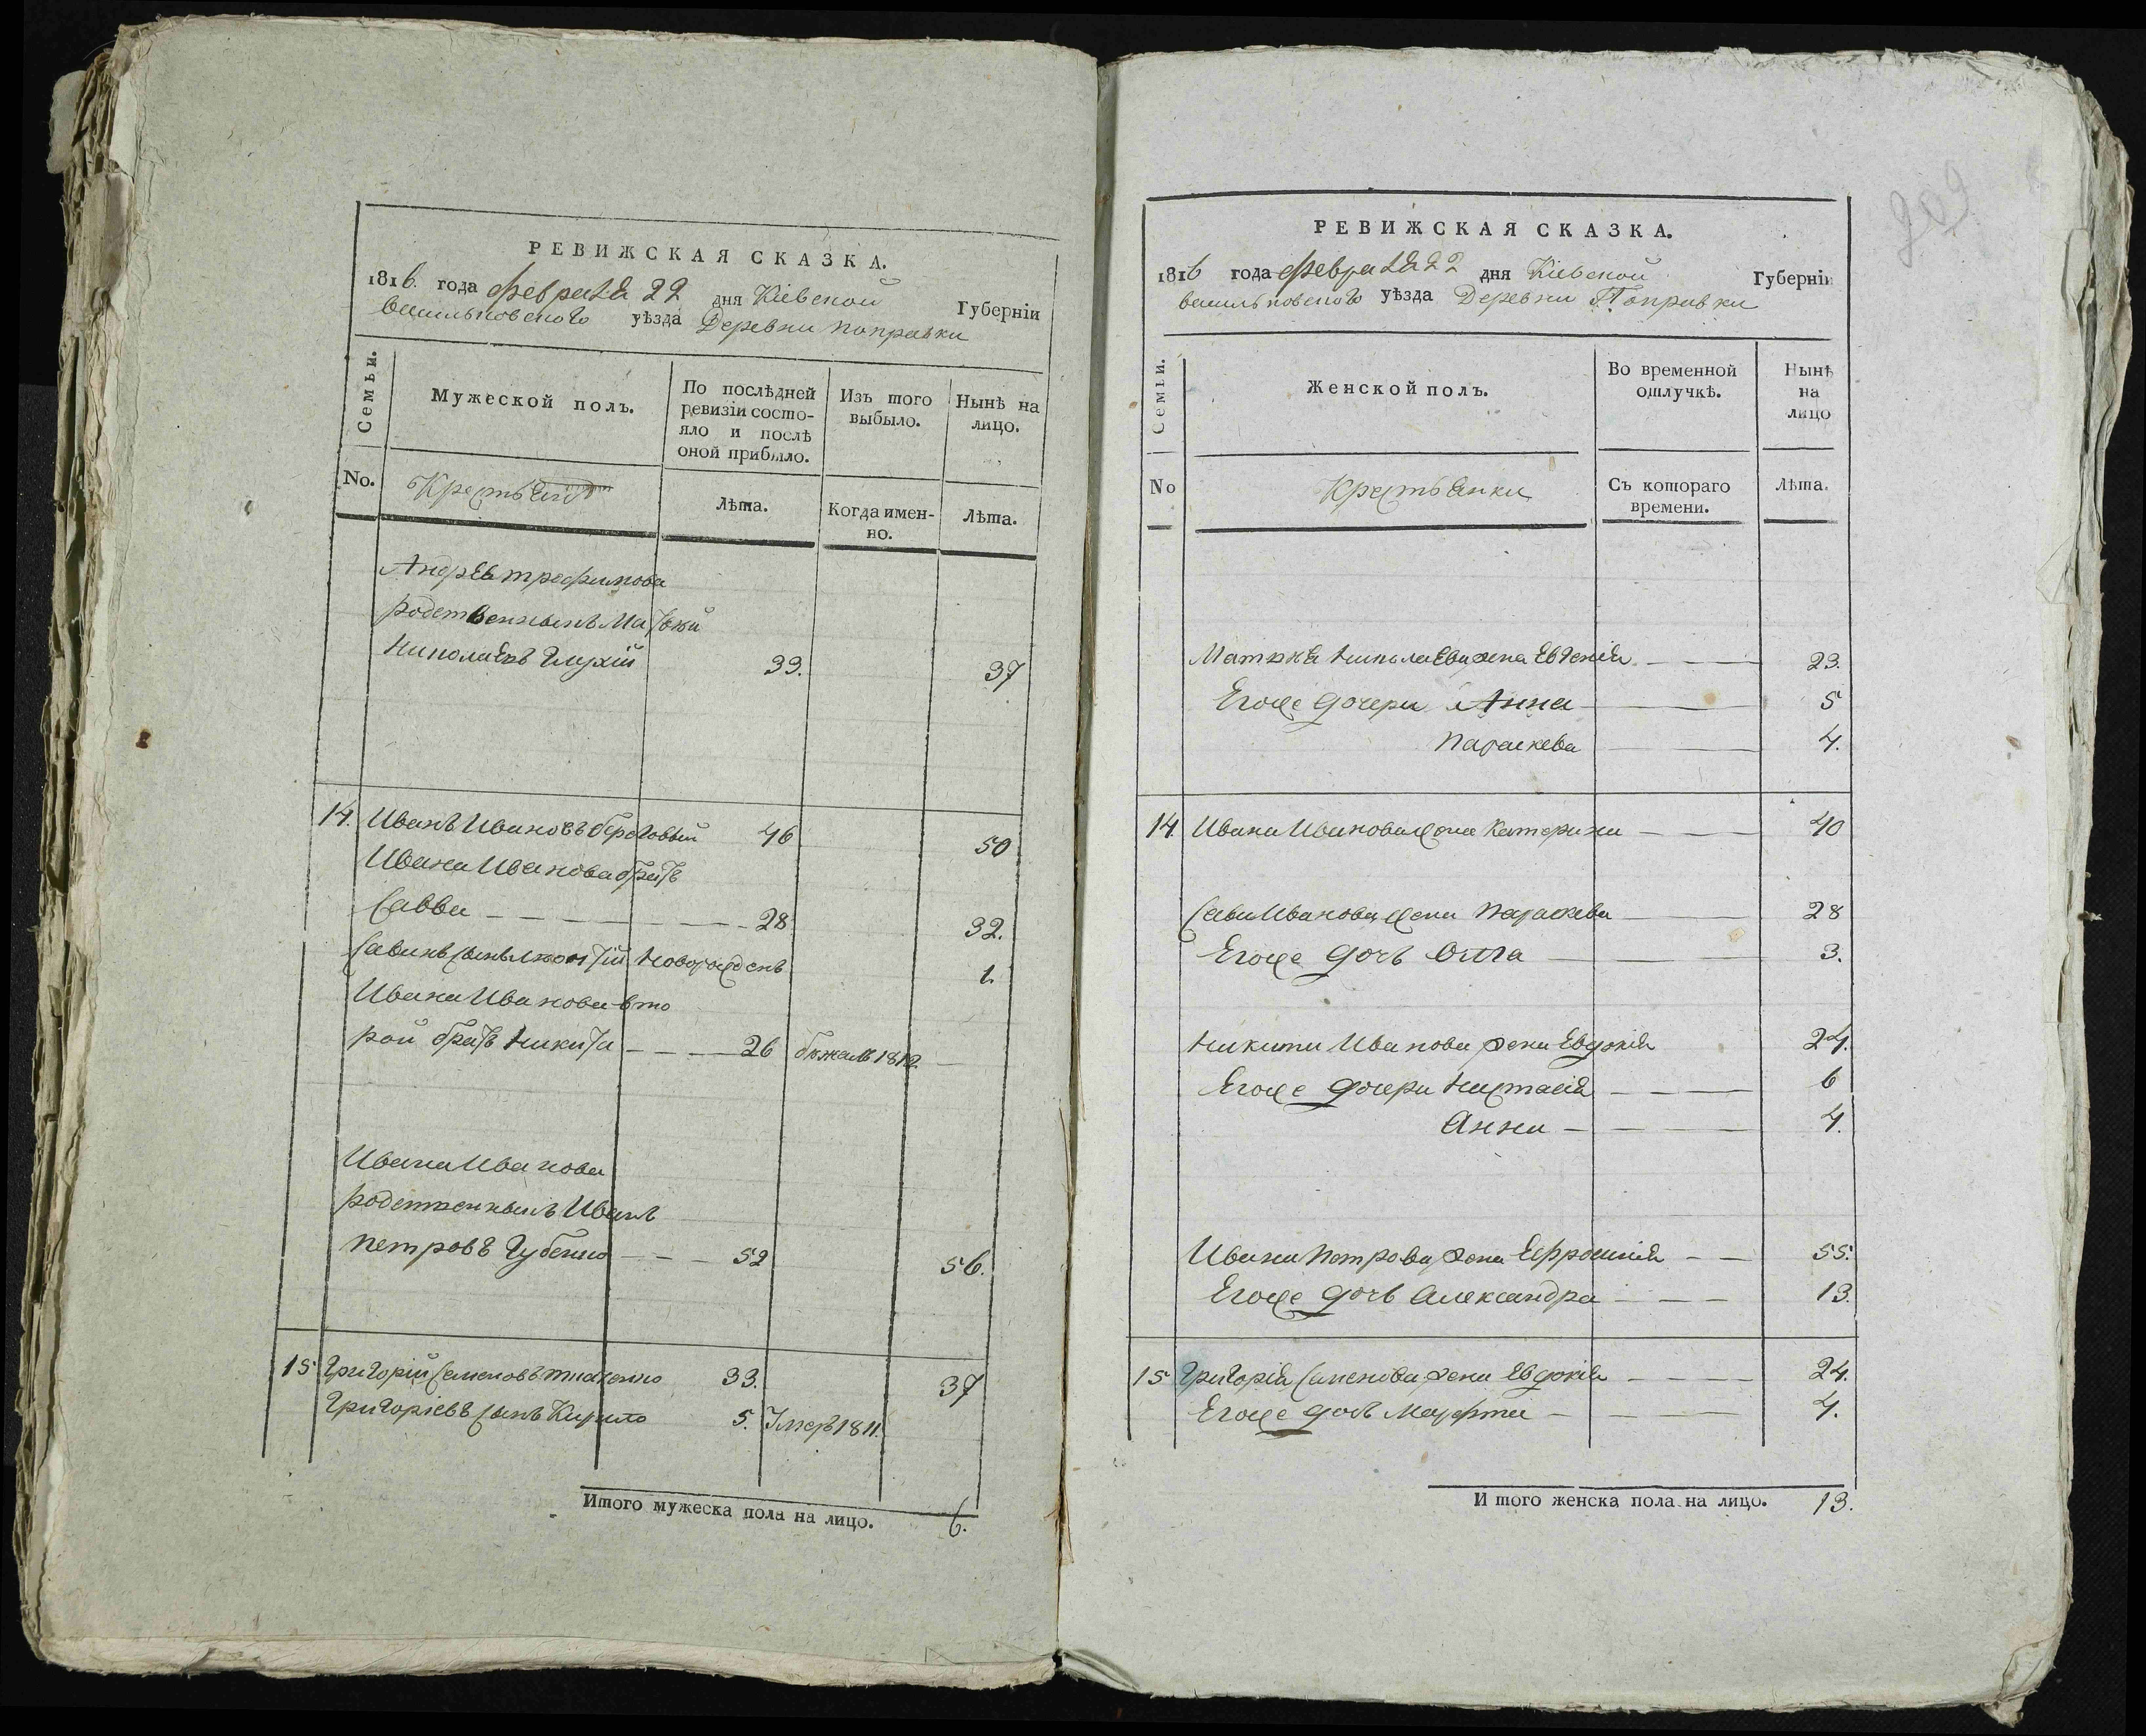 РЕВИЖСКАЯ СКАЗКА.
1816. года февраля 22 дня Кіевской Губерніи
васильковского уѣзда Деревни поправки
Семьи.
Мужеской полъ.
По послѣдней ревизіи состояло и послѣ оной прибыло.
Изъ того выбыло.
Нынѣ на лицо.
No.
Крестьянъ
Лѣта.
Когда именно.
Лѣта.
Андрея трофимова
родственникъ Матвѣй
Николаевъ Глухій 33. 37
14. Иванъ Ивановъ береговый 46 50
Ивана Иванова братъ
Савва 28 32.
Савинъ сынъ Леонтій новорожденъ 1.
Ивана Иванова вто
рой братъ Никита 26 бѣжалъ 1812
Ивана Иванова
родственникъ Иванъ
петровъ Губенко 52 56.
15 Григорій Семеновъ ткаченко 33. 37
Григоріевъ сынъ Кирило 5. Умеръ 1811.
Итого мужеска пола на лицо. 6.
209
РЕВИЖСКАЯ СКАЗКА.
1816 года февраля 22 дня Кіевской Губерніи
васильковского уѣзда Деревни Поправки
Семьи.
Женской полъ.
Во временной отлучкѣ.
Нынѣ на лицо
No
Крестьянки
Съ котораго времени.
Лѣта.
Матвѣя Николаева жена Евгенія 23.
Егоже дочери Анна 5
Параскева 4.
14. Ивана Иванова жена Катерина 40
Савы Иванова жена Параскева 28
Егоже дочь Олга 3.
Никиты Иванова жена Евдокія 24.
Егоже дочери Настасія 6
Анна 4.
Ивана Петрова жена Ефросинія 55.
Егоже дочь Александра 13.
15 Григорія Семенова жена Евдокія 24.
Егоже дочь Марфта 4.
Итого женска пола на лицо. 13.